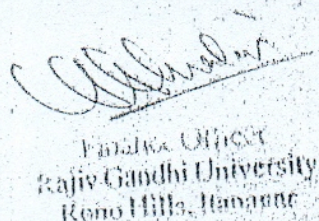 Finance Officer
Rajiv Gandhi University
Rono Hills, Itanagar